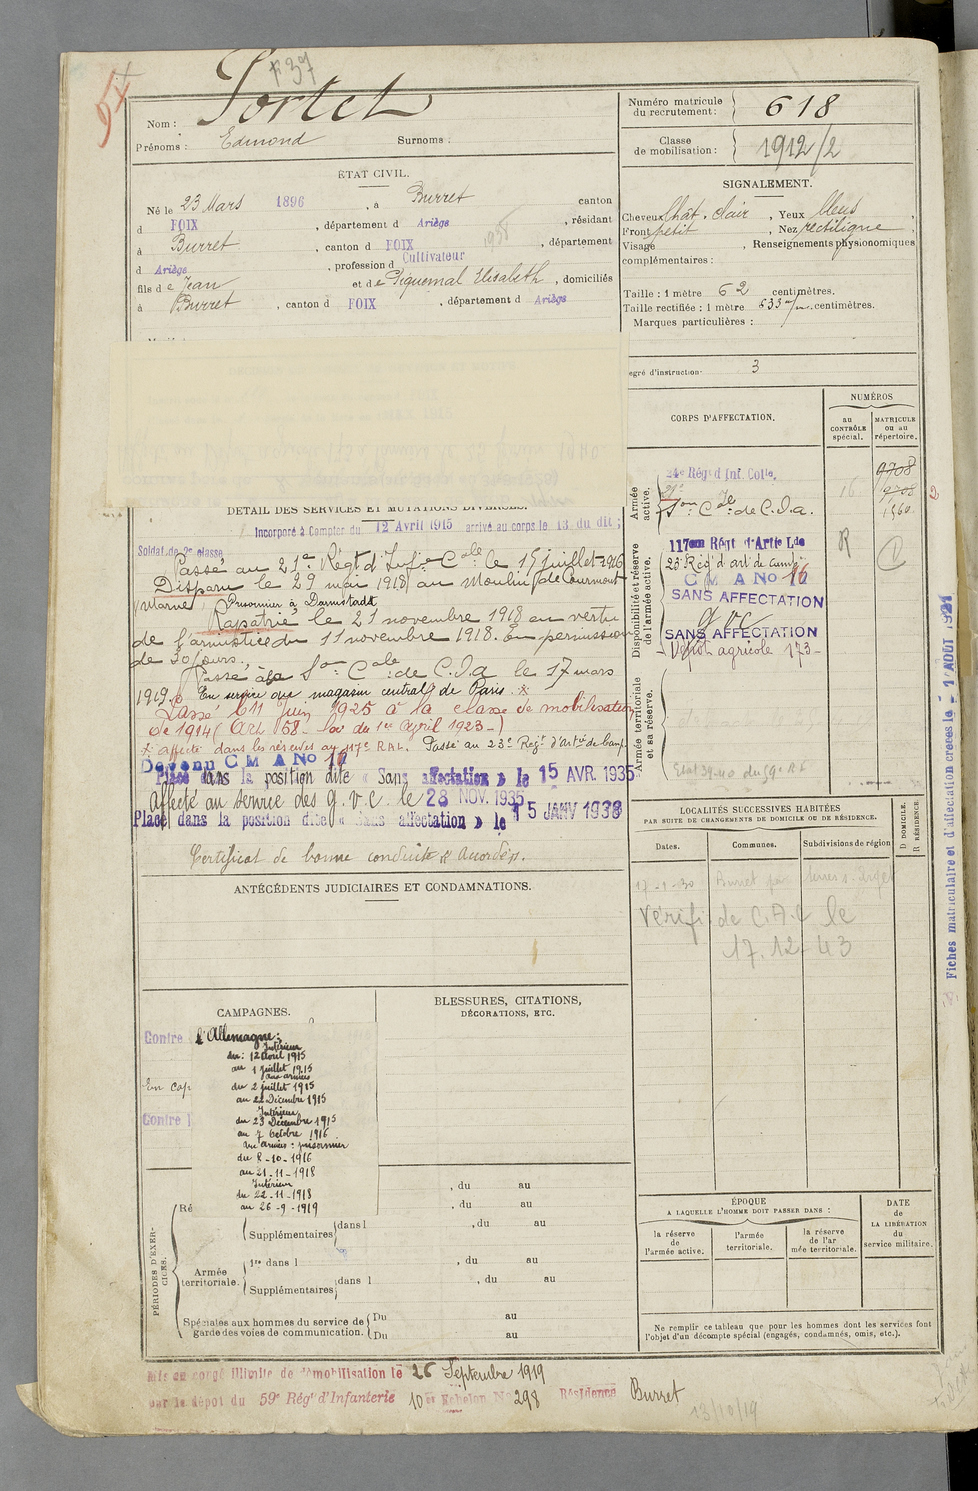 F 37
Nom : Portet
Prénoms : Edmond Surnoms :
ETAT CIVIL.
Né le 23 Mars 1896, à Burret canton
d FOIX, département d Ariège, résidant
à Burret, canton d FOIX, département
d Ariège, profession d Cultivateur
fils de Jean et de Piquemal Elisabeth, domiciliés
à Burret, canton d FOIX, département d Ariège
DETAIL DES SERVICES ET MUTATIONS DIVERSES.
Incorporé à Compter du 12 Avril 1915 arrivé au corps le 13 du dit ;
Soldat de 2e classe
Passé au 21e Régt d'Infie Cale le 15 juillet 1916
Disparu le 29 mai 1918 au Moulin de Courmont
(Marne) Prisonnier à Darmstadt
Rapatrié le 21 novembre 1918 en vertu
de l'armistice du 11 novembre 1918. En permission
de 30 jours.
Passé à la Son Cale de C.O.a le 17 mars
1919. En service au magasin central de Paris. *
Passé le 11 juin 1925 à la classe de mobilisation
de 1914 (Art 58 - Loi du 1er Avril 1923 -)
* affecté dans les réserves au 117e R.A.L. Passé au 23e Régt d'Artie de camp.
Devenu C M A No 16
Placé dans la position dite « Sans affectation » le 15 AVR. 1935
Affecté au service des g.v.c. le 28 NOV. 1935
Placé dans la position dite « Sans affectation » le 15 JANV 1938
Certificat de bonne conduite « Accordé ».
ANTÉCÉDENTS JUDICIAIRES ET CONDAMNATIONS.
CAMPAGNES.
Contre l'Allemagne :
Intérieur
du : 12 avril 1915
au 1 juillet 1915
aux armées
du 2 juillet 1915
au 22 Décembre 1915
Intérieur
du 23 Décembre 1915
au 7 octobre 1916
aux armées : prisonnier
du 8-10-1916
au 21-11-1918
Intérieur
du 22-11-1918
au 26-9-1919
En cap
Contre l
BLESSURES, CITATIONS,
DÉCORATIONS, ETC.
PÉRIODES D'EXERCICES.
Ré
, du au
, du au
Supplémentaires dans l , du au
Armée territoriale.
1re dans l , du au
Supplémentaires dans l , du au
Spéciales aux hommes du service de garde des voies de communication.
Du au
Du au
Mis en congé illimité de démobilisation le 26 Septembre 1919
par le dépôt du 59e Régt d'Infanterie 10e Echelon No 298 Résidence Burret
13/10/19
Numéro matricule
du recrutement : 618
Classe
de mobilisation : 1912/2
SIGNALEMENT.
Cheveux chât. clair, Yeux bleus,
Front petit, Nez rectiligne,
Visage , Renseignements physionomiques
complémentaires :
Taille : 1 mètre 62 centimètres.
Taille rectifiée : 1 mètre 633 m/m. centimètres.
Marques particulières :
egré d'instruction 3
CORPS D'AFFECTATION.
NUMÉROS
au CONTRÔLE spécial.
MATRICULE ou au répertoire.
Armée active.
24e Régt d'Inf. Colle.
21e
Son Cale de C.O.a.
16
9708
9708
1560
2
Disponibilité et réserve de l'armée active.
117em Régt d'Artie Lde
23e Régt d'art de camp.
C M A No 16
SANS AFFECTATION
g v c
SANS AFFECTATION
Dépôt agricole 173
R
C
Armée territoriale et sa réserve.
LOCALITÉS SUCCESSIVES HABITÉES
PAR SUITE DE CHANGEMENTS DE DOMICILE OU DE RÉSIDENCE.
Dates. Communes. Subdivisions de région
D DOMICILE.
R RÉSIDENCE.
17-1-30 Burret par Serres s. Arget
Vérifi de C.A.C le
17.12-43
ÉPOQUE
A LAQUELLE L'HOMME DOIT PASSER DANS :
la réserve de l'armée active.
l'armée territoriale.
la réserve de l'armée territoriale.
DATE de LA LIBÉRATION du service militaire.
Ne remplir ce tableau que pour les hommes dont les services font
l'objet d'un décompte spécial (engagés, condamnés, omis, etc.).
Fiches matriculaire et d'affectation créées le 1 AOUT 1921